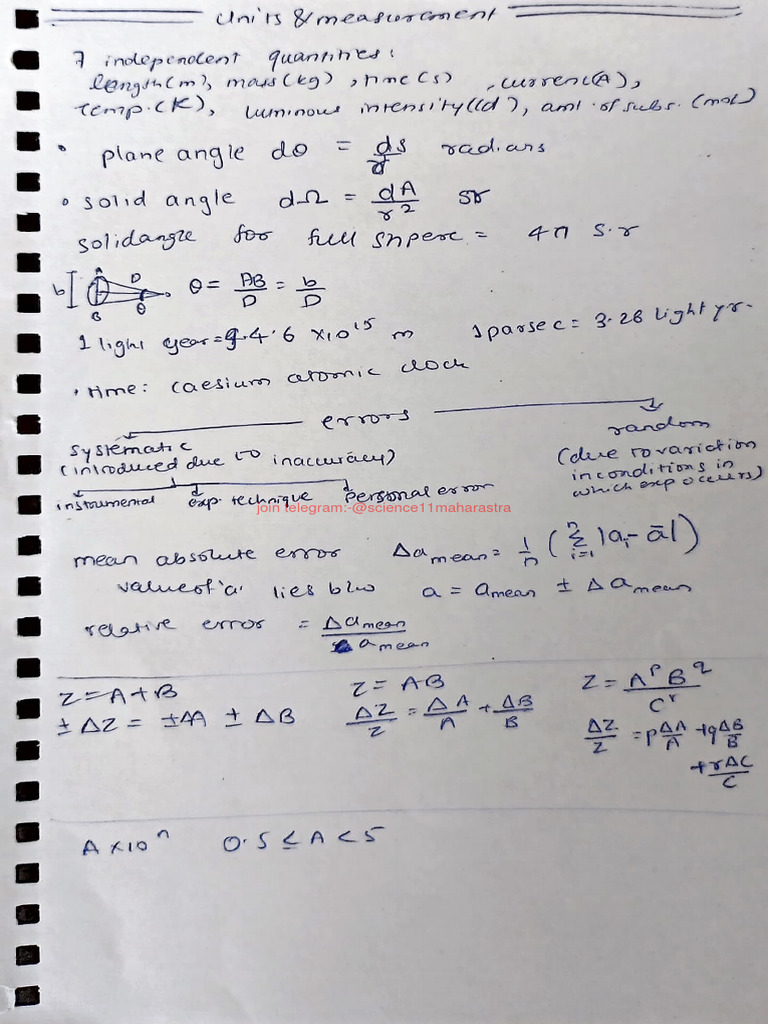 Units & measurement
7 independent quantities:
length(m), mass(kg), time(s), current(A),
Temp.(K), luminous intensity(Cd), amt. of subs. (mol)
• plane angle dθ = ds/r radians
• solid angle dΩ = dA/r² sr
solidangle for full sphere = 4π s.r
b A B D θ θ = AB/D = b/D
1 light year = 9.4.6 ×10¹⁵ m 1parsec = 3.26 light yr.
• time: caesium atomic clock
errors
systematic random
(introduced due to inaccuracy) (due to variation
in conditions in
which exp occurs)
instrumental exp. technique personal error
join telegram:-@science11maharastra
mean absolute error Δa mean = 1/n (Σ i=1 n |aᵢ - ā|)
value of 'a' lies b/w a = a mean ± Δa mean
relative error = Δa mean / a mean
Z = A+B Z = AB Z = A^p B^q / C^r
± ΔZ = ±ΔA ± ΔB ΔZ/Z = ΔA/A + ΔB/B ΔZ/Z = p ΔA/A + q ΔB/B
+ r ΔC/C
A ×10ⁿ 0.5 ≤ A < 5